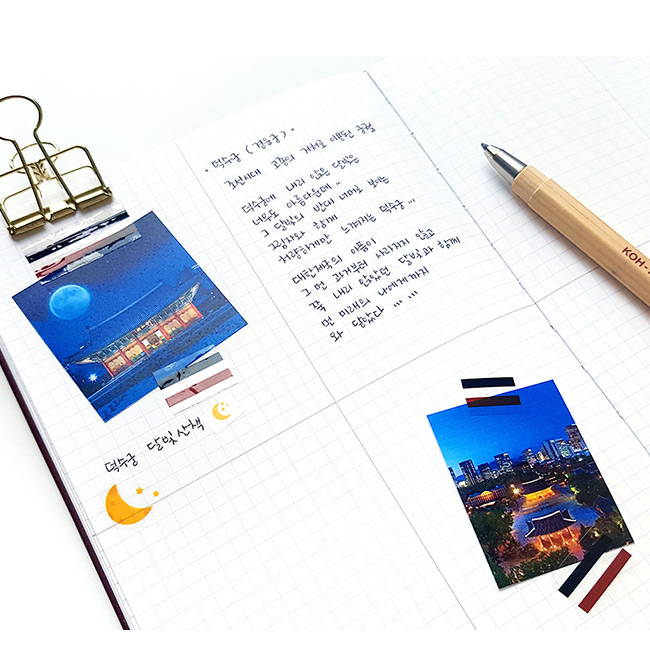 · 덕수궁 (경운궁) ·
조선시대 고종의 거처로 이용된 궁궐
덕수궁에 내려 앉은 달빛은
너무도 아름다운데..
그 달빛의 반대 너머로 보이는
그림자와 함께
처량하게만 느껴지는 덕수궁...
대한제국의 아픔이
그 먼 과거부터 사라지지 않고
꾹 내려 앉았던 달빛과 함께
먼 미래의 나에게까지
와 닿았다 ... ...
덕수궁 달빛산책
KOH-